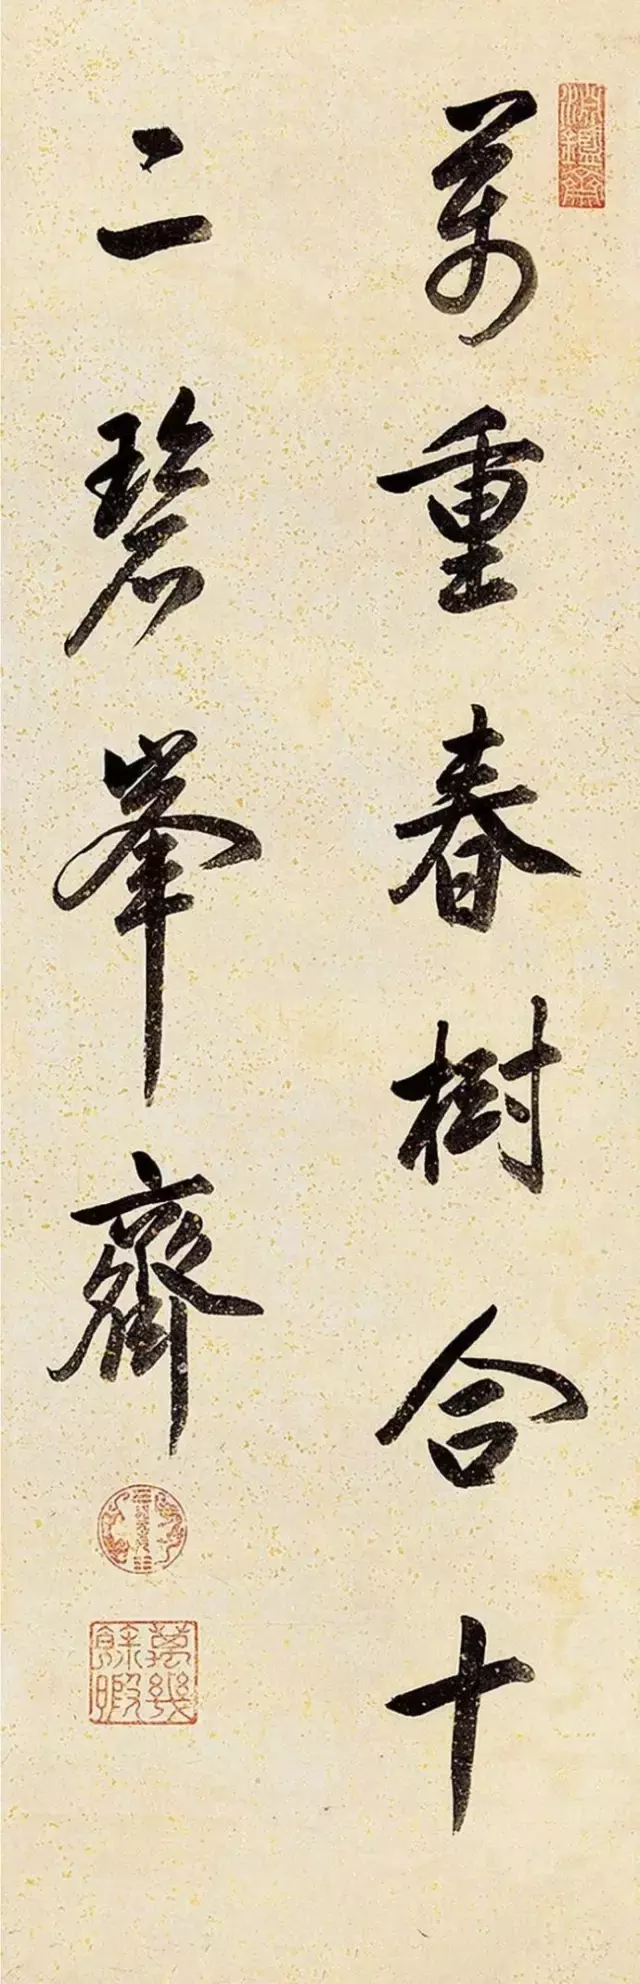 淵鑑齋
萬重春樹合十
二碧峯齊
萬幾餘暇